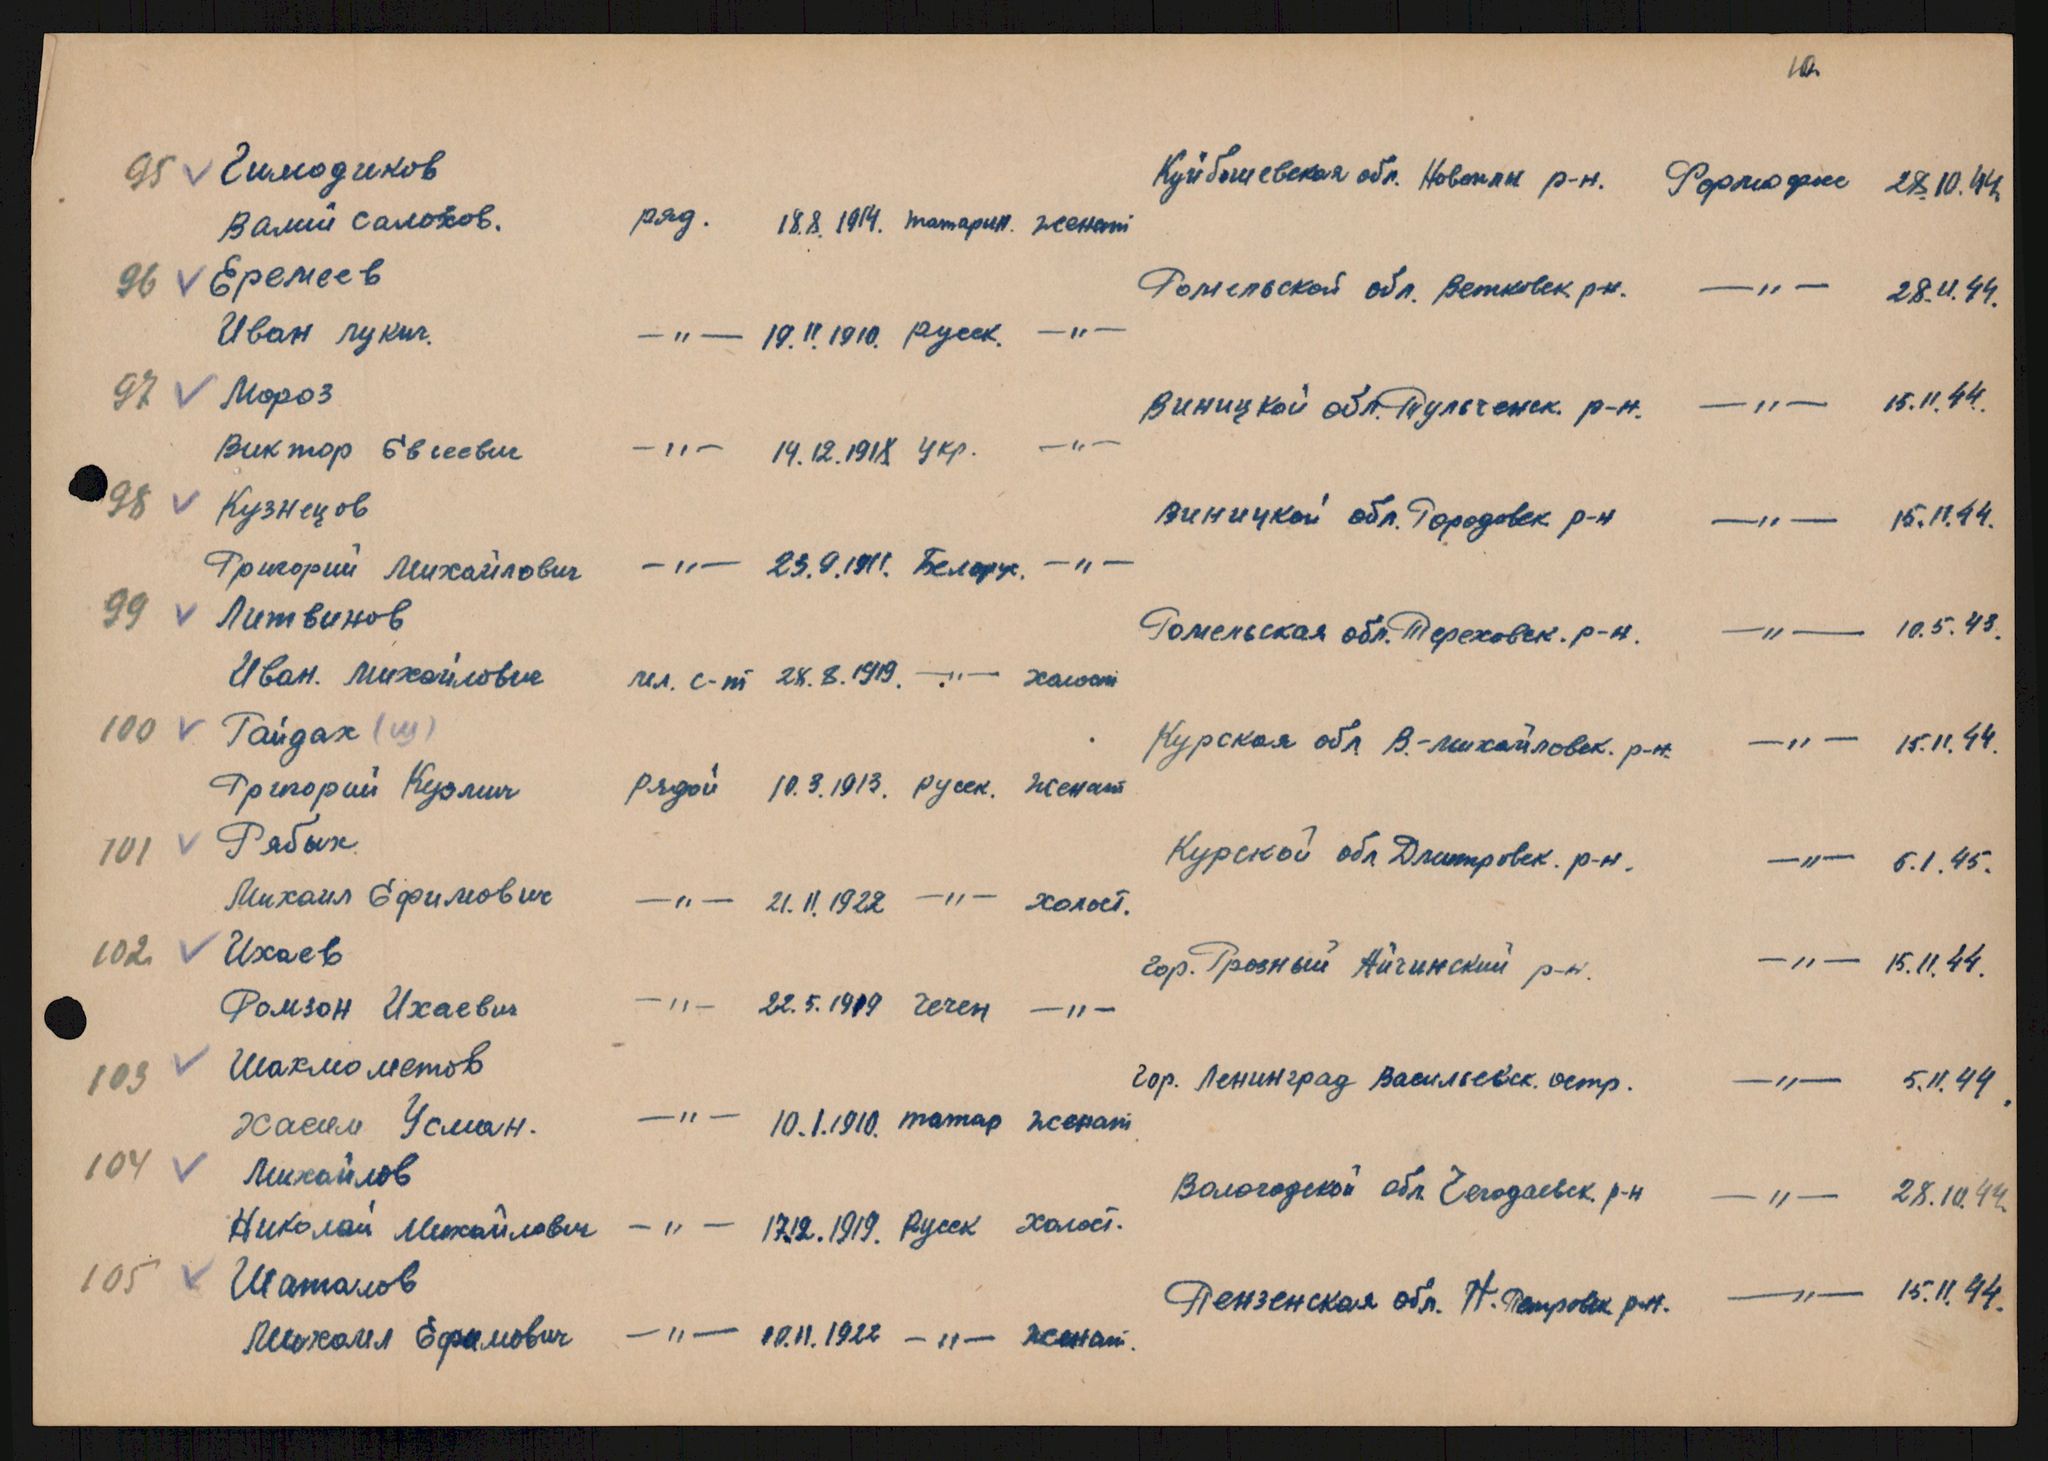 10
95 ✓ Гимодиков Куйбышевская обл. Новомлы р-н. 28.10.44.
Валий Салохов. ряд. 18.8.1914. татарин. женат
96 ✓ Еремеев Гомельской обл. Ветковск. р-н. —"— 28.11.44.
Иван Лукич. —"— 19.11.1910. русск. —"—
97 ✓ Мороз Виницкой обл. Тульченск. р-н. —"— 15.11.44.
Виктор Евсеевич —"— 14.12.1918 укр. —"—
98 ✓ Кузнецов Виницкой обл. Городовск р-н —"— 15.11.44.
Григорий Михайлович —"— 23.9.1911. Белорус. —"—
99 ✓ Литвинов Гомельская обл. Тереховск. р-н. —"— 10.5.43.
Иван. Михайлович мл. с-т 28.8.1919. —"— холост
100 ✓ Гайдах (щ) Курская обл В.-Михайловск. р-н. —"— 15.11.44.
Григорий Кузмич рядой 10.3.1913. русск. женат
101 ✓ Рябых Курской обл Дмитровск. р-н. —"— 6.1.45.
Михаил Ефимович —"— 21.11.1922 —"— холост.
102 ✓ Ихаев гор. Грозный Айчинский р-н. —"— 15.11.44.
Ромзан Ихаевич —"— 22.5.1919 чечен —"—
103 ✓ Шахмометов гор. Ленинград Васильевск. остр. —"— 5.11.44.
Хасим Усман. —"— 10.1.1910. татар женат
104 ✓ Михайлов Вологодской обл. Чегодаевск. р-н —"— 28.10.44.
Николай Михайлович —"— 17.12.1919. русск холост.
105 ✓ Шаталов Пензенская обл. Н. Петровск р-н. —"— 15.11.44.
Михаил Ефимович —"— 10.11.1922 —"— женат.